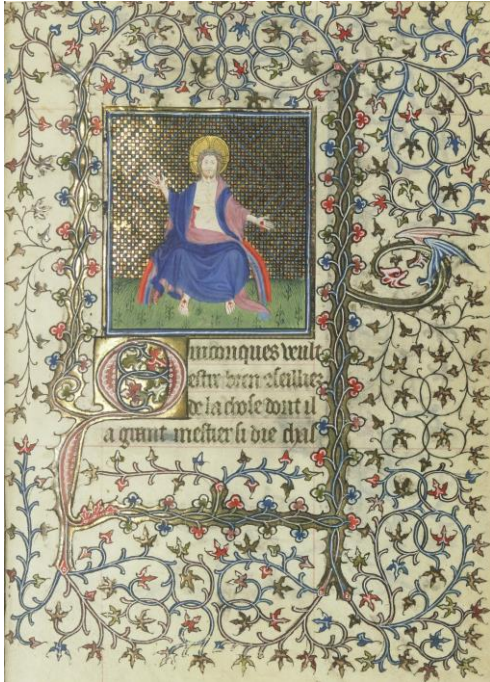 Quiconques veult
estre bien cseilliez
de la chose dont il
a grant mestier si die chas